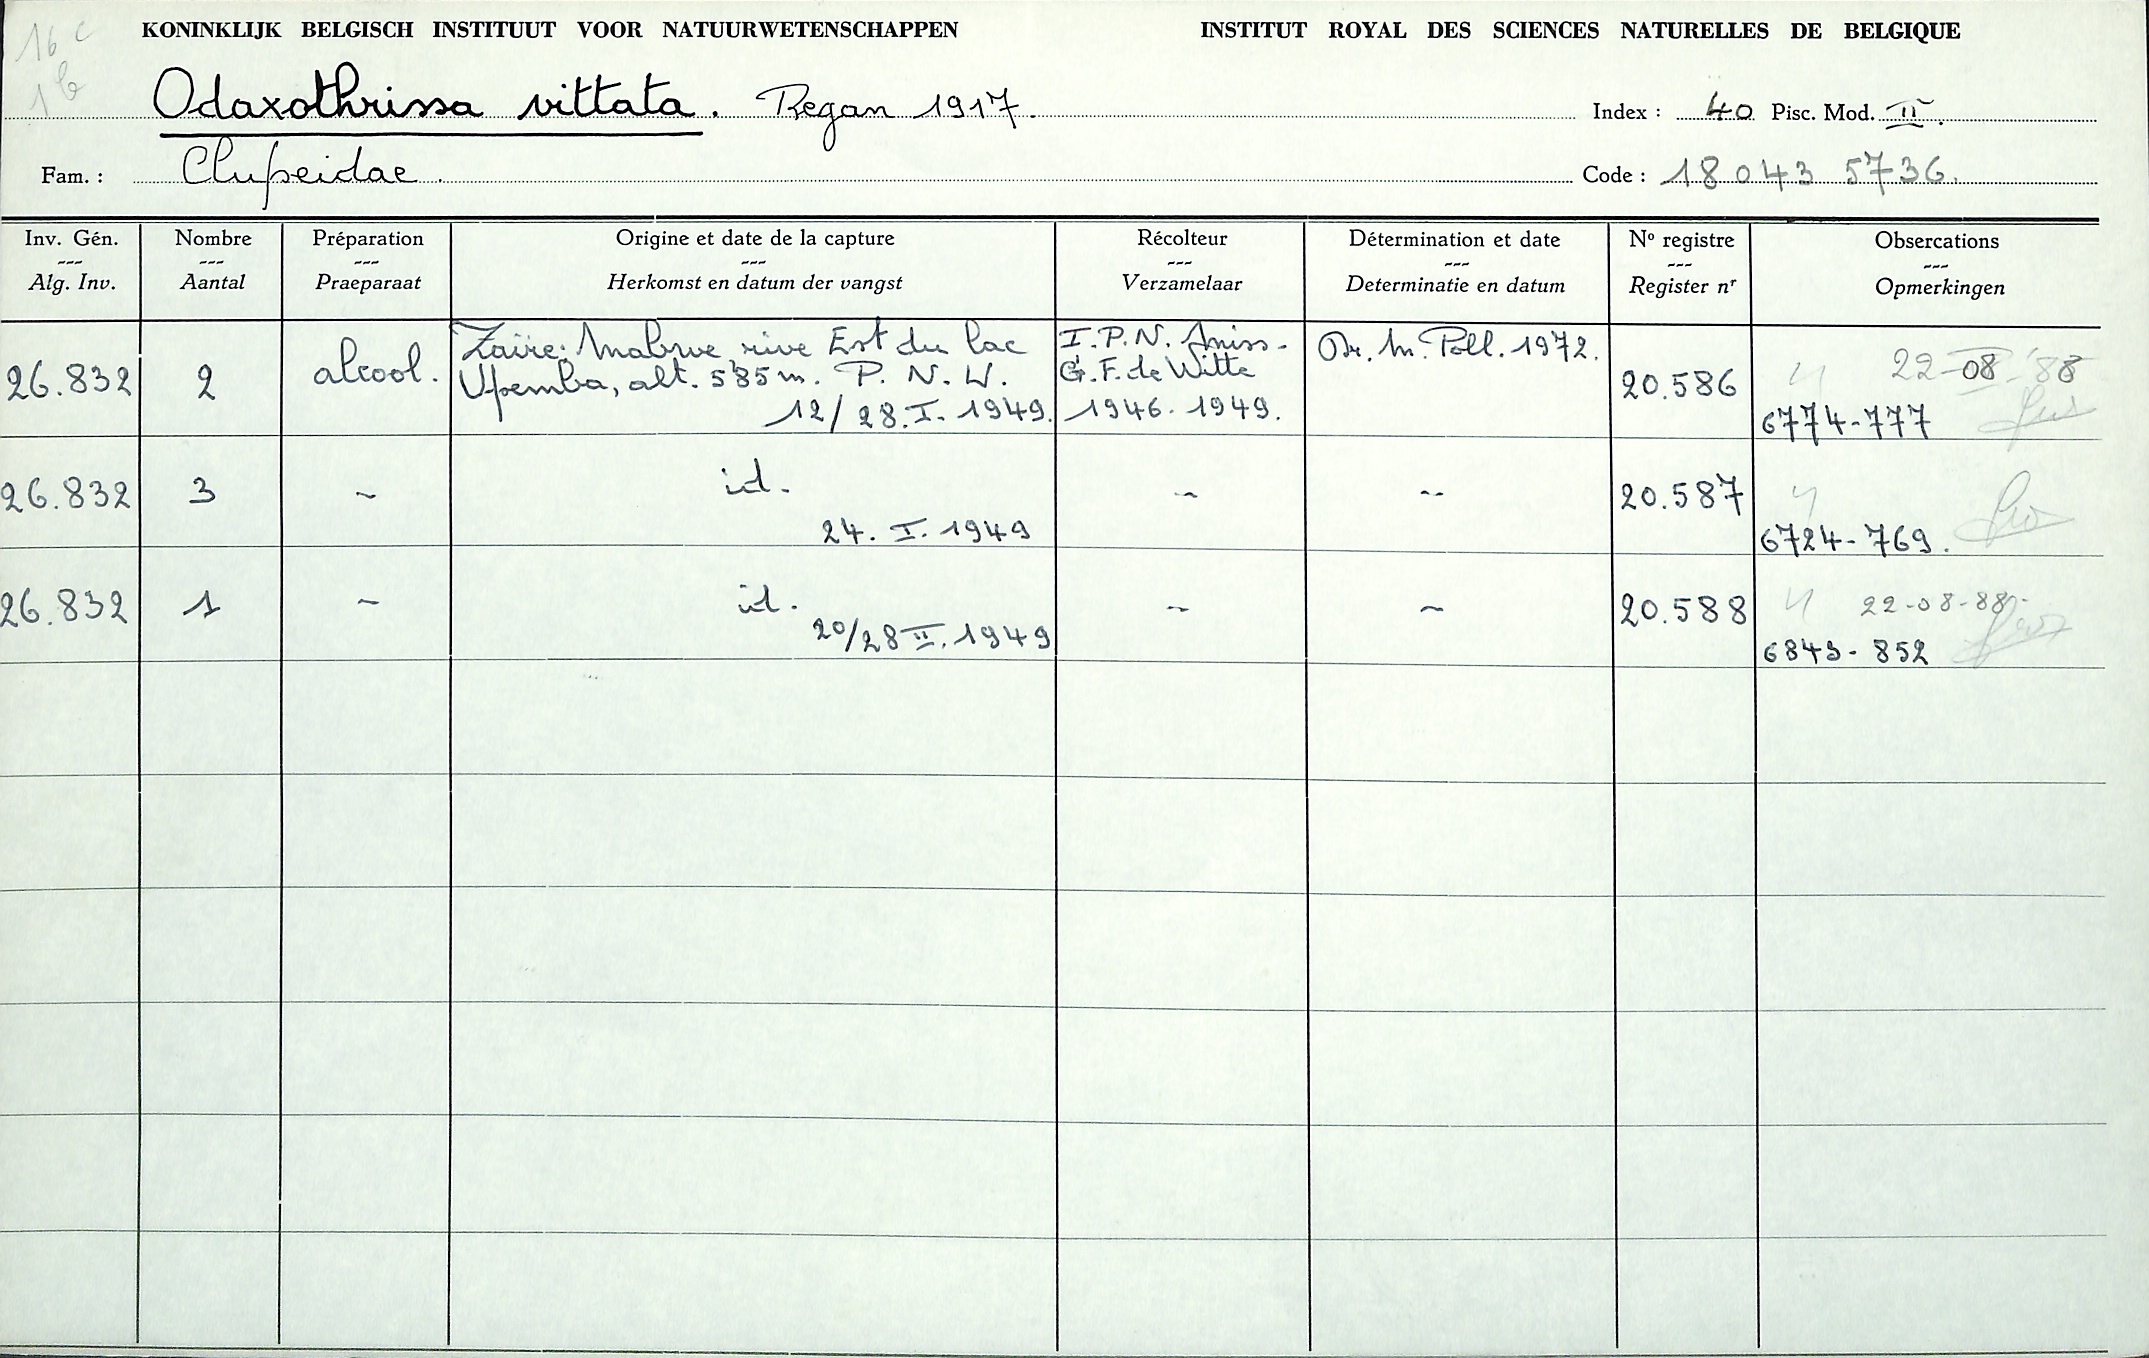 16 c
1 b
KONINKLIJK BELGISCH INSTITUUT VOOR NATUURWETENSCHAPPEN INSTITUT ROYAL DES SCIENCES NATURELLES DE BELGIQUE
Odaxothrissa vittata. Regan 1917. Index : 40 Pisc. Mod. II.
Fam. : Clupeidae. Code : 18043 5736.
Inv. Gén. Nombre Préparation Origine et date de la capture Récolteur Détermination et date No registre Obsercations
--- --- --- --- --- --- --- ---
Alg. Inv. Aantal Praeparaat Herkomst en datum der vangst Verzamelaar Determinatie en datum Register nr Opmerkingen
Zaïre: Mabwe, rive Est du lac I.P.N. Dr. M. Poll. 1972.
26.832 2 alcool. Upemba, alt. 585 m. P. N. U. G.F. de Witte 20.586 22-08-'88
12/28.I.1949. 1946-1949. 6774-777
26.832 3 ~ id. ~ ~ 20.587
24. I. 1949 6724-769.
26.832 1 ~ id. ~ ~ 20.588 22-08-88
20/28 II. 1949 6843-852